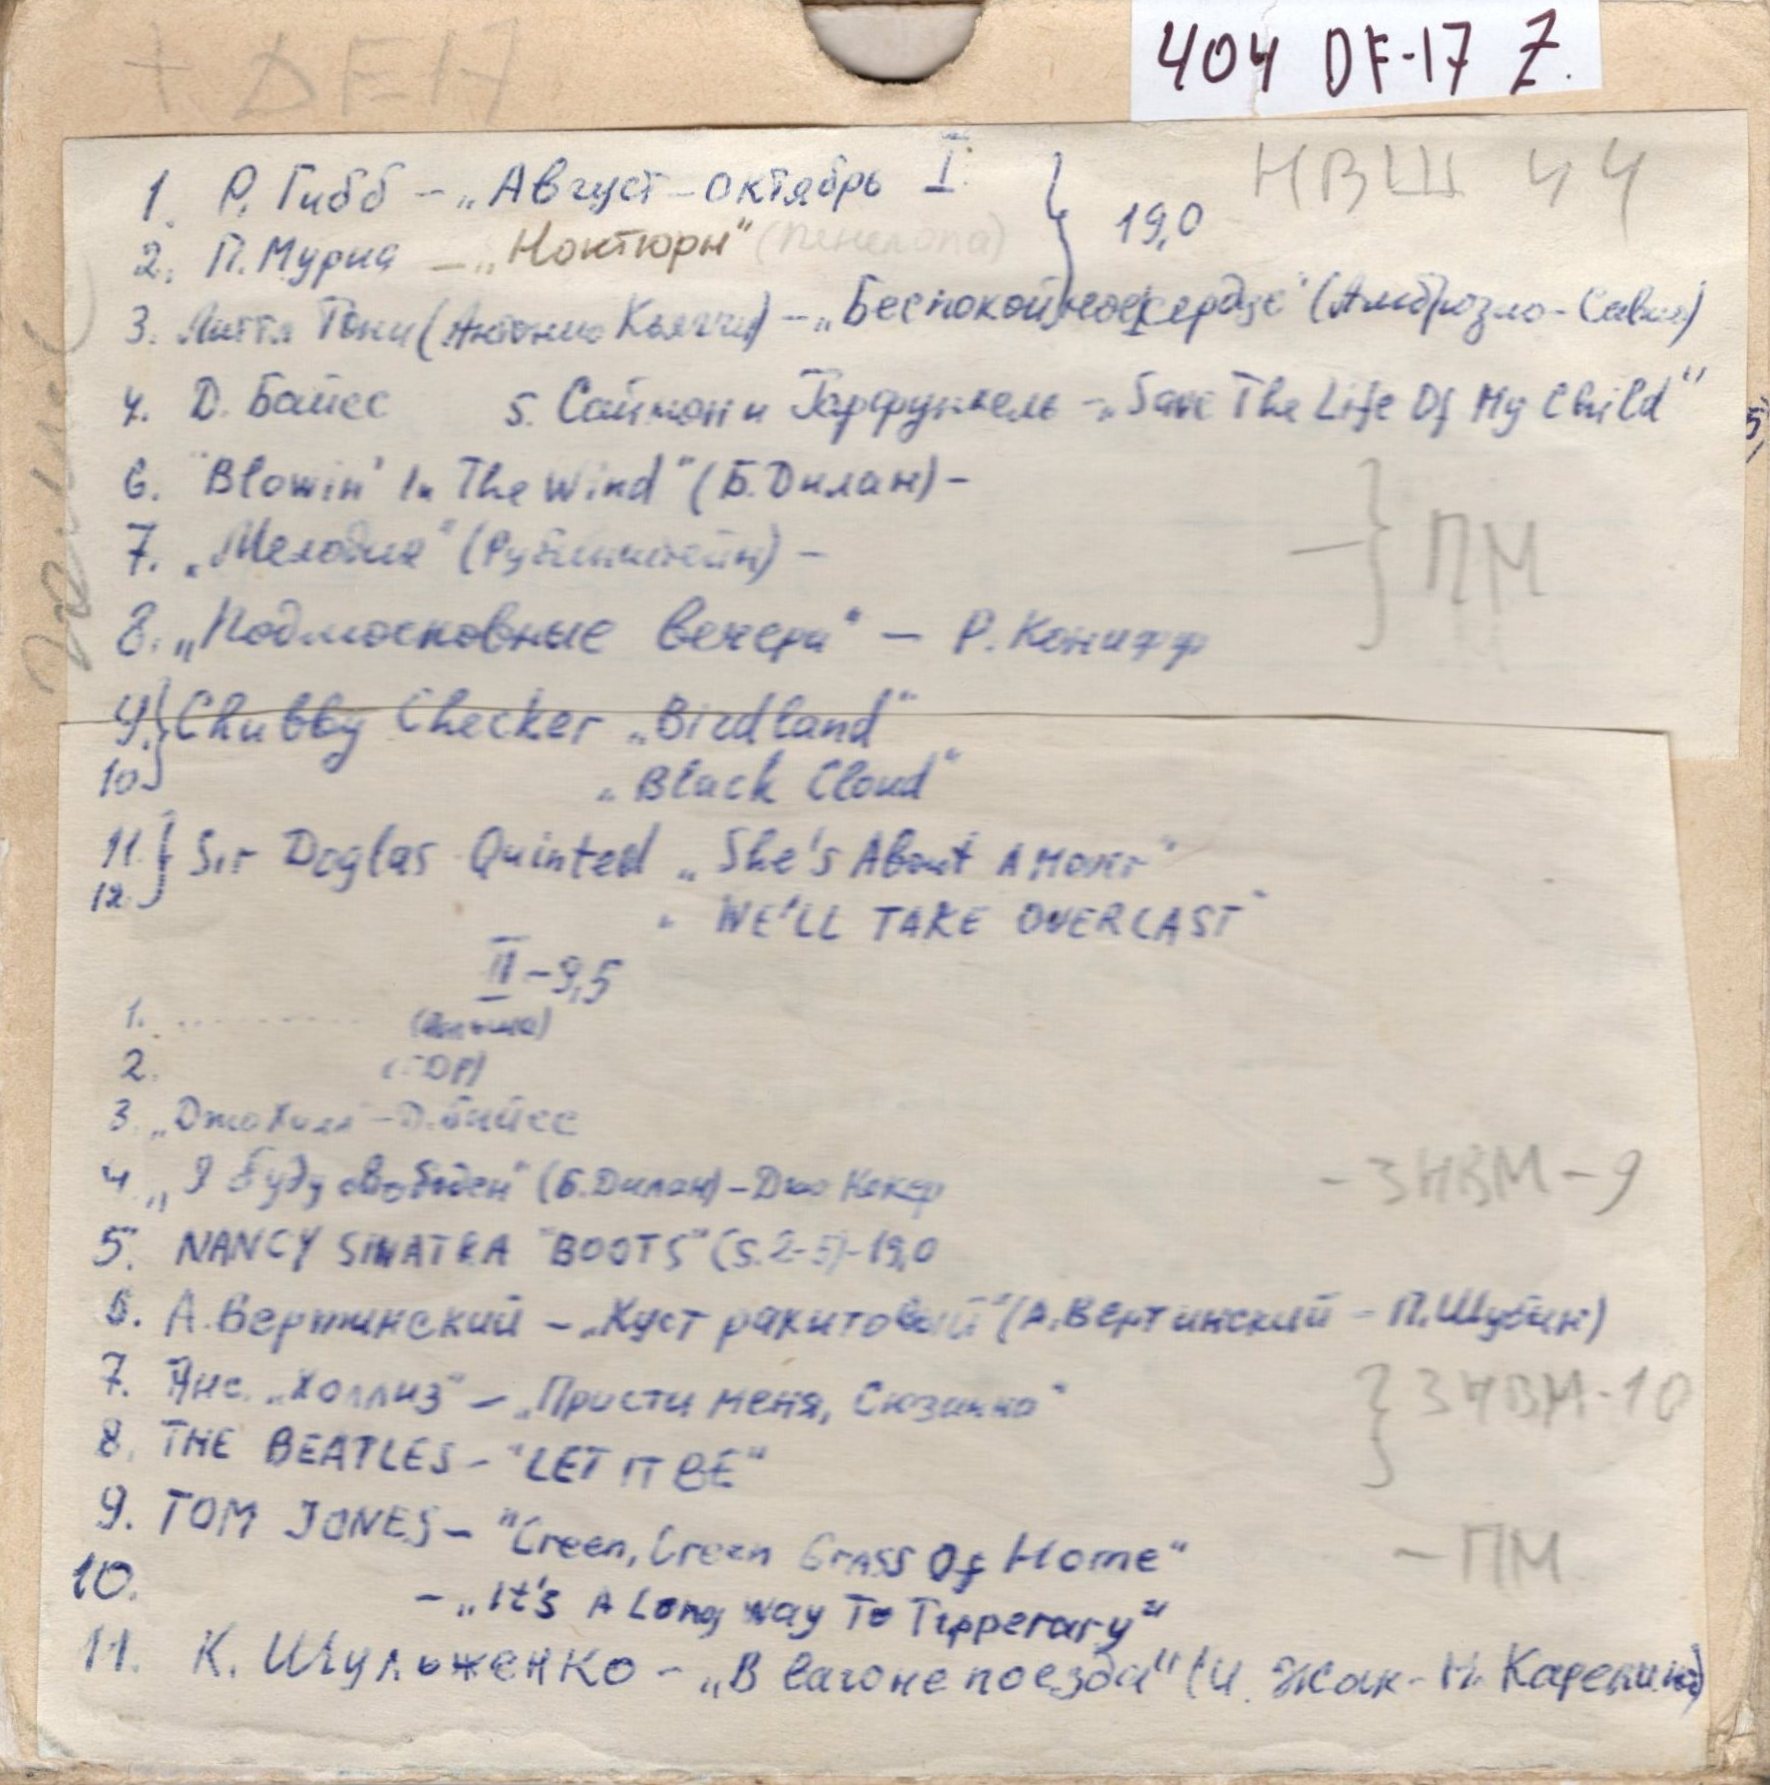 404 DF-17 Z.
+ DF17
I.
НВШ 44
1. Р. Гибб - „Август - октябрь
19,0
2. П. Мориа - „Ноктюрн" (Пенелопа)
3. Литтл Тони (Антонио Кьяччи) - „Беспокойное сердце" (Амброзио - Савио)
4. Д. Байес 5. Саймон и Гарфункель - „Save The Life Of My Child"
6. "Blowin' In The Wind" (Б. Дилан) -
7. „Мелодия" (Рубинштейн) -
— ПМ
8. „Подмосковные вечера" — Р. Конифф
9. Chubby Checker „Birdland"
10. „Black Cloud"
11. Sir Doglas Quinted „She's About A Mover"
12. „WE'LL TAKE OVER LAST"
II - 9,5
1.
2.
3. „Джо Хилл" - Д. Байес
4. „Я буду свободен" (Б. Дилан) - Джо Кокер
- ЗНВМ - 9
5. NANCY SINATRA "BOOTS" (S. 2-5) - 19,0
6. А. Вертинский - „Куст ракитовый" (А. Вертинский - П. Шубин)
7. Анс. „Холлиз" - „Прости меня, Сюзанна"
ЗНВМ - 10
8. THE BEATLES - "LET IT BE"
9. TOM JONES - "Green, Green Grass Of Home"
- ПМ
10. - „It's A Long Way To Tipperary"
11. К. Шульженко - „В вагоне поезда" (И. Жак - Н. Карелина)